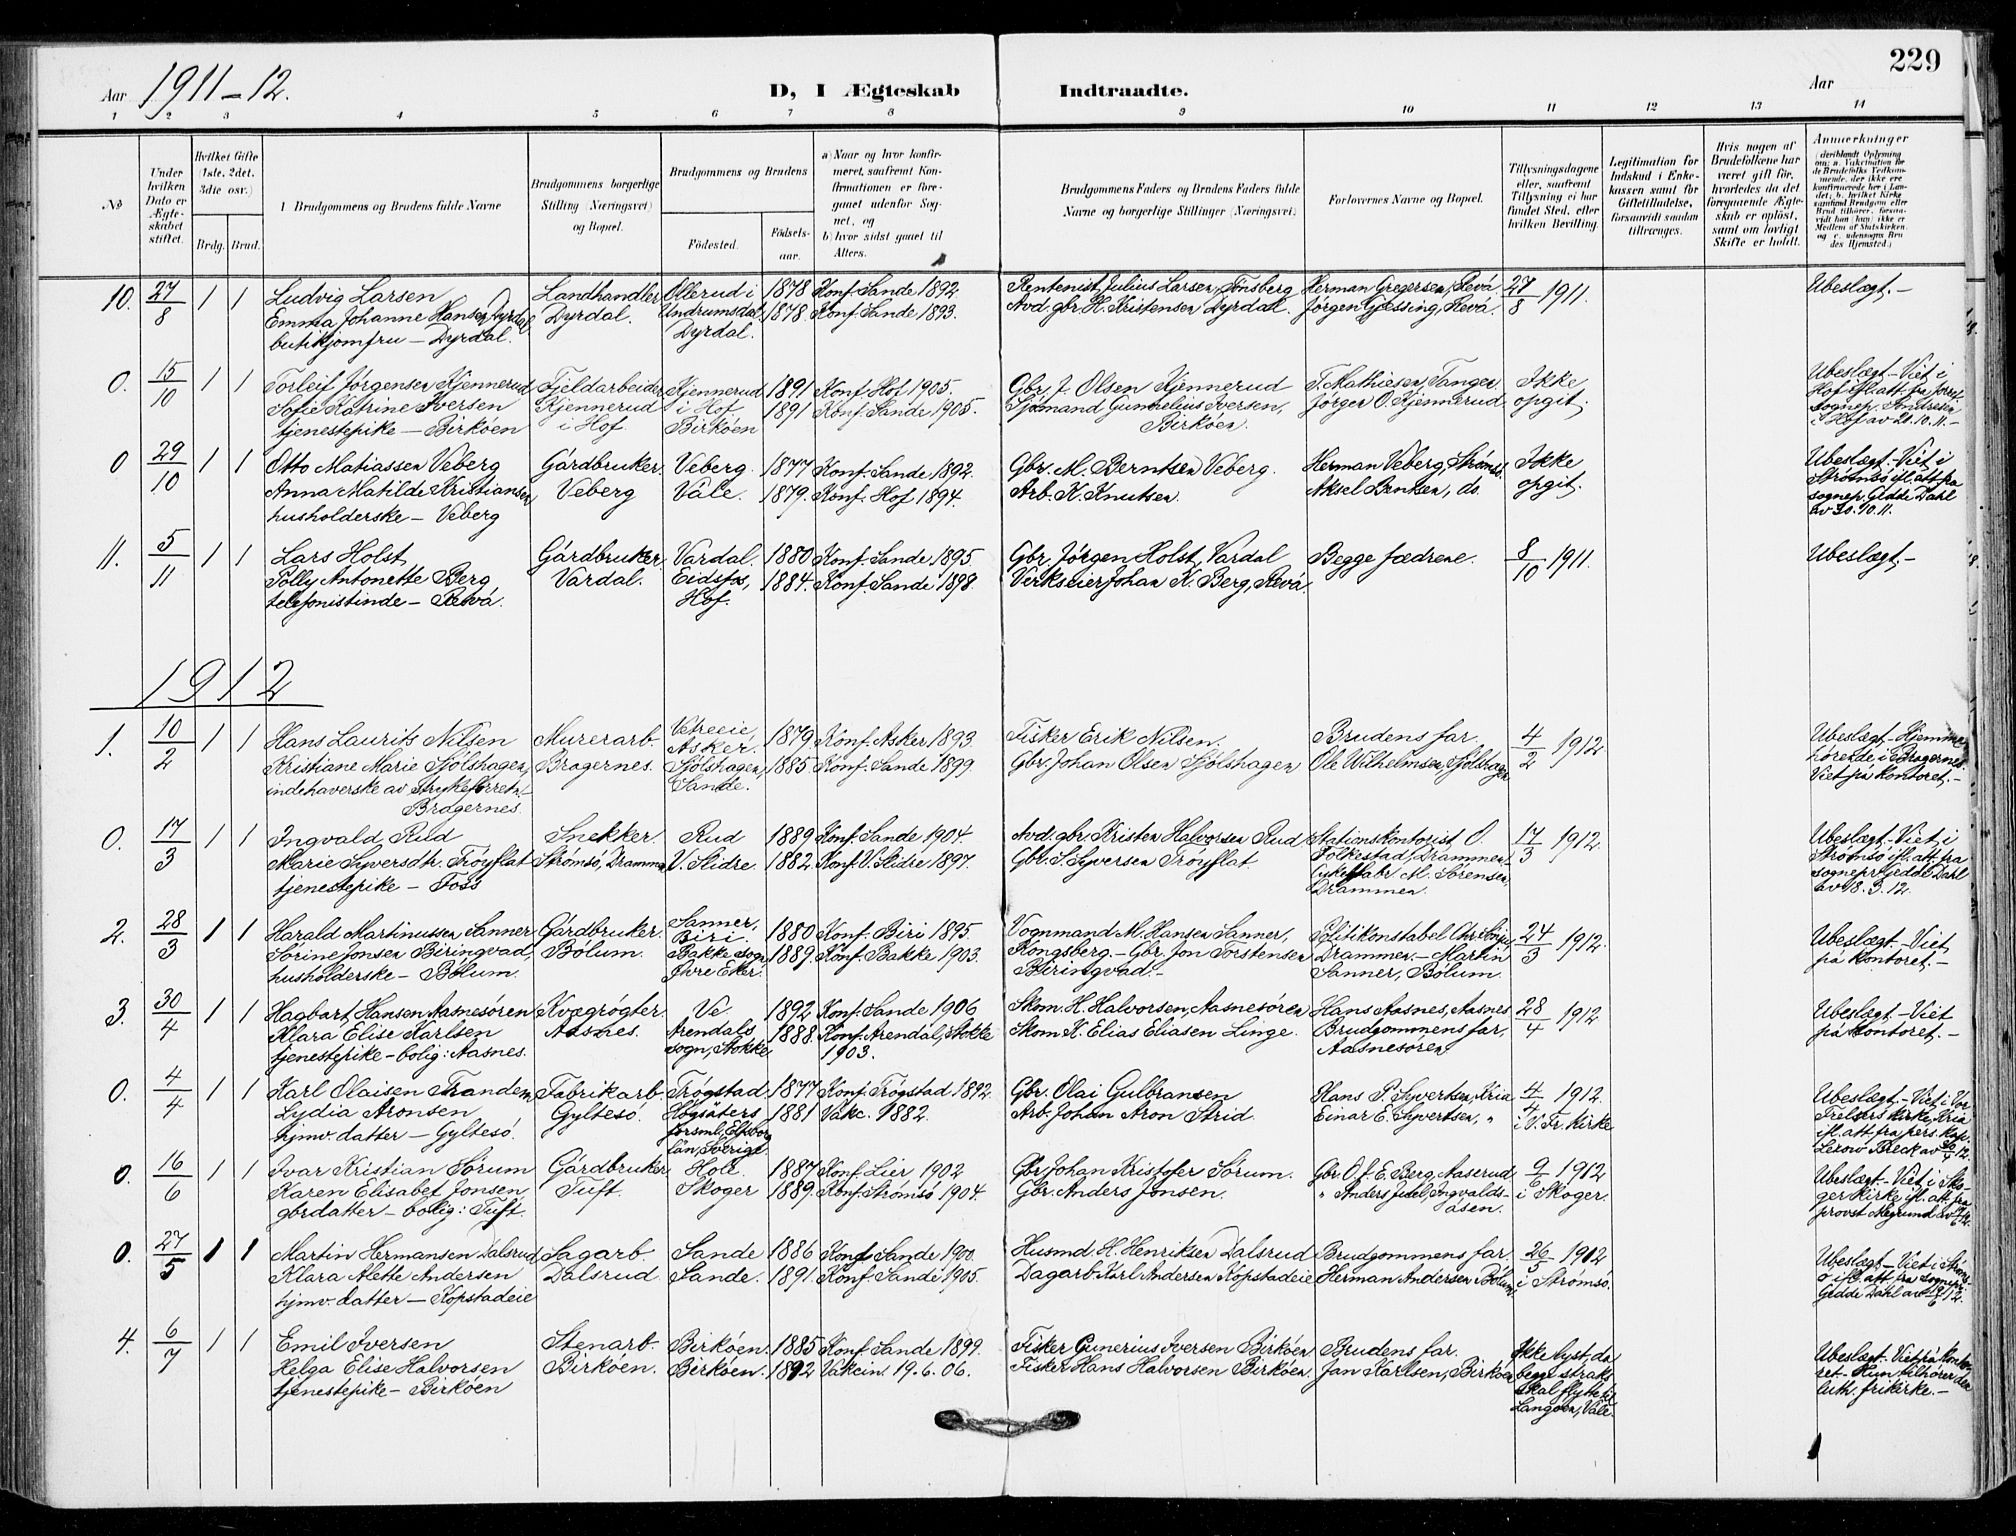 229
Aar 1911-12.
D, I Ægteskab Indtraadte.
Aar
1 2 3 4 5 6 7 8 9 10 11 12 13 14
No
Under hvilken Dato er Ægteskabet stiftet.
Hvilket Gifte (1ste, 2det, 3die osv.)
Brdg. Brud.
1. Brudgommens og Brudens fulde Navne
Brudgommens borgerlige Stilling (Næringsvei) og Bopæl.
Brudgommens og Brudens
Fødested. Fødselsaar.
a) Naar og hvor konfirmeret, saafremt Konfirmationen er foregaaet udenfor Sognet, og
b) hvor sidst gaaet til Alters.
Brudgommens Faders og Brudens Faders fulde Navne og borgerlige Stillinger (Næringsvei).
Forlovernes Navne og Bopæl.
Tillysningsdagene eller, saafremt Tillysning ei har fundet Sted, efter hvilken Bevilling.
Legitimation for Indskud i Enkekassen samt for Giftetilladelse, forsaavidt saadan tiltrænges.
Hvis nogen af Brudefolkene har været gift før, hvorledes da det foregaaende Ægteskab er opløst, samt om lovligt Skifte er holdt.
Anmerkninger
10. 27/8 1 1 Ludvig Larsen Landhandler Ollerud i 1878 Konf. Sande 1892 Rentenist Julius Larsen, Tønsberg Herman Gregersen, Revå 27/8 1911. Ubeslægt.-
Emma Johanne Hansen Dyrdal Dyrdal. Andrumsdal 1878. Konf. Sande 1893. Avd. gbr. H. Kristensen Dyrdal. Jørgen Gjessing, Revå.
butikjomfru - Dyrdal. Dyrdal.
0. 15/10 1 1 Torleif Jørgensen Kjennerud Fjeldarbeider Kjennerud 1891 Konf. Hof 1905. Gbr. J. Olsen Kjennerud T. Mathiesen, Tanger Ikke Ubeslægt.- Viet i
Sofie Katrine Iversen Kjennerud i Hof 1891 Konf. Sande 1905. Sjømand Gunnelius Iversen, Jørgen O. Kjennerud. opgit. Hof ifl. att. fra
tjenestepike - Birkøen i Hof. Birkøen Birkøen. sognep. i Hof av 20.10.11.-
0 29/10 1 1 Otto Matiassen Veberg Gårdbruker Veberg. 1877 Konf. Sande 1892. Gbr. M. Berntsen Veberg. Herman Veberg, Strømsø. Ikke Ubeslægt.- Viet i
Anna Matilde Kristiansen Veberg Våle. 1879. Konf. Hof 1894. Arb. K. Knutsen. Aksel Berntsen, ds. opgit. Strømsø ifl. att. fra
husholderske - Veberg sognep. Gedde Dahl
av 30.10.11.
11. 5/11 1 1 Lars Holst Gårdbruker Vardal. 1880 Konf. Sande 1895. Gbr. Jørgen Holst, Vardal Begge fædrene. 8/10 1911. Ubeslægt.-
Polly Antonette Berg Vardal. Eidsfos, 1884. Konf. Sande 1898. Verkseier Johan K. Berg, Revå.
telefonistinde - Revå. Hof.
1912
1. 10/2 1 1 Hans Laurits Nilsen Murerarb. Vetreeie 1879 Konf. Asker 1893. Fisker Erik Nilsen. Brudens far. 4/2 1912 Ubeslægt.- Hjemme-
Kristiane Marie Sjølshagen, Bragernes. Asker. 1885 Konf. Sande 1899. Gbr. Johan Olsen Sjølshagen Ole Wilhelmsen, Sjølshagen hørende i Bragernes.
indehaverske av strykeforretn.- Sjølshagen, Viet på kontoret.-
Bragernes. Sande.
0. 17/3 1 1 Ingvald Rud Snekker. Rud 1889 Konf. Sande 1904. Avd. gbr. Kristen Halvorsen Rud Stationskontorist O. 17/3 1912. Ubeslægt.- Viet i
Marie Syversdtr. Trøyflat Strømsø, Drammen V. Slidre. 1882 Konf. V. Slidre 1897. Gbr. S. Syversen Trøyflat. Folkestad, Drammen, Strømsø ifl. att. fra
tjenestepike - Foss M. Sørensen, sognepr. Gedde Dahl
Drammen. av 18.3.12.
2. 28/3 1 1 Harald Martinussen Sanner Gårdbruker. Sanner, 1880 Konf. Biri 1895 Vognmand M. Hansen Sanner, Politikonstabel 24/3 1912. Ubeslægt.- Viet
Sørine Jonsen Biringvad, Bølum. Biri. 1889. Konf. Bakke 1903. Kongsberg.- Gbr. Jon Torstensen Drammen.- Martin på kontoret.-
husholderske - Bølum. Bakke sogn, Biringvad.- Sanner, Bølum.
Øvre Eker.
3. 30/4 1 1 Hagbart Hansen Aasnesøren Kvægrøgter Ve 1892 Konf. Sande 1906 Skom. H. Halvorsen, Aasnesøren Hans Aasnes, Aasnes 28/4 1912. Ubeslægt.- Viet
Klara Elise Karlsen Aasnes. Arendals 1888. Konf. Arendal, Stokke Skom. K. Elias Eliasen Linge. Brudgommens far, på kontoret.-
tjenestepike - bolig: Aasnes. sogn, Stokke 1903. Aasnesøren
0. 4/4 1 1 Karl Olaisen Trandem Fabrikarb. Trøgstad 1877 Konf. Trøgstad 1892. Gbr. Olai Gulbransen Hans P. Syvertsen, Kria 4/4 1912. Ubeslægt.- Viet i Vor
Lydia Aronsen Gyltesø. Högsäters 1881 Vakc. 1882. Arb. Johan Aron Strid Einar E. Syvertsen, " i V. Fr. kirke Frelsers kirke, Kria
hjmv. datter - Gyltesø. försml. Elfsborg ifl. att. fra pers. kap.
län, Sverige
0. 16/6 1 1 Ivar Kristian Sørum Gårdbruker Hole 1887 Konf. Lier 1902 Gbr. Johan Kristofer Sørum. Gbr. O. f. E. Berg, Aaserud 9/6 1912 Ubeslægt.- Viet i Sko-
Karen Elisabet Jonsen Tuft. Skoger 1889. Konf. Strømsø 1904. Gbr. Anders Jonsen. " Anders Juel, Ingvalds- i Skoger. ger kirke ifl. att. fra
gbrdatter - bolig: Tuft. åsen. provst
0. 27/5 1 1 Martin Hermansen Dalsrud Sagarb. Sande 1886 Konf. Sande 1900. Husmd. H. Henriksen Dalsrud Brudgommens far 26/5 1912 Ubeslægt.- Viet i Strøms-
Klara Alette Andersen Dalsrud. Sande. 1891. Konf. Sande 1905. Dagarb. Karl Andersen Kopstadeie Herman Andersen Bølum i Strømsø. ø ifl. att. fra sognepr.
hjmv. datter - Kopstadeie Gedde Dahl
4. 6/7 1 1 Emil Iversen Stenarb. Birkøen. 1885 Konf. Sande 1899. Fisker Gunerius Iversen Birkøen Brudens far. Ikke lyst, da Ubeslægt.- Viet på konto-
Helga Elise Halvorsen Birkøen. Birkøen. 1892 Vakcin. 19.6.06. Fisker Hans Halvorsen Birkøen. Jan Karlsen, Birkøen begge straks ret.- Hun tilhører den
tjenestepike - Birkøen skal flytte til luth. frikirke.-
Langøen, Våle.